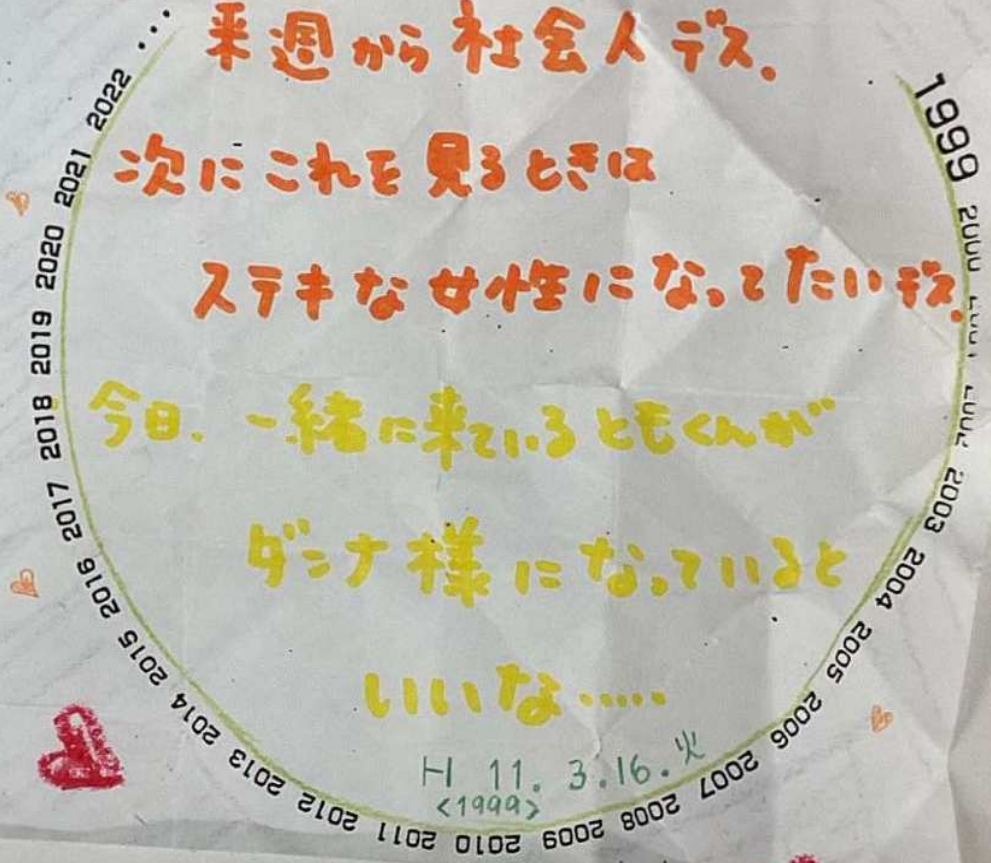 来週から社会人デス。
次にこれを見るときは
ステキな女性になってたいデス。
今日、一緒に来ているともくんが
ダンナ様になっていると
いいな……
H 11. 3.16.火
<1999>
1999 2000 2003 2004 2005 2006 2007 2008 2009 2010 2011 2012 2013 2014 2015 2016 2017 2018 2019 2020 2021 2022 ...